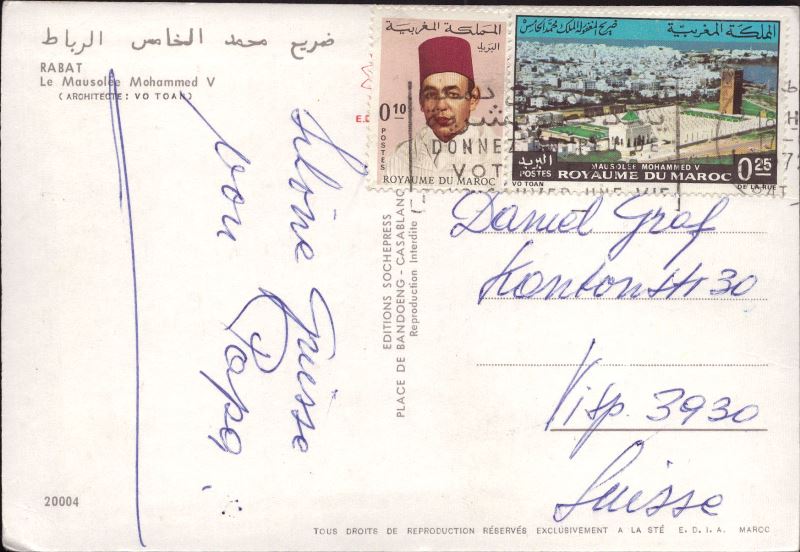 ضريح محمد الخامس الرباط
RABAT
Le Mausolée Mohammed V
(ARCHITECTE: VO TOAN)
Schöne Grüsse
von Papa
20004
EDITIONS SOCHEPRESS
PLACE DE BANDOENG - CASABLANC
Reproduction Interdite
المملكة المغربية
البريد
0.10
POSTES
ROYAUME DU MAROC
المملكة المغربية
ضريح المغفور له الملك محمد الخامس
البريد
POSTES
MAUSOLÉE MOHAMMED V
ROYAUME DU MAROC
0.25
VO TOAN
DE LA RUE
DONNEZ
VOT
UNE VIE
Daniel Graf
Kantonstr 30
Visp. 3930
Suisse
TOUS DROITS DE REPRODUCTION RÉSERVÉS EXCLUSIVEMENT A LA STÉ E.D.I.A. MAROC